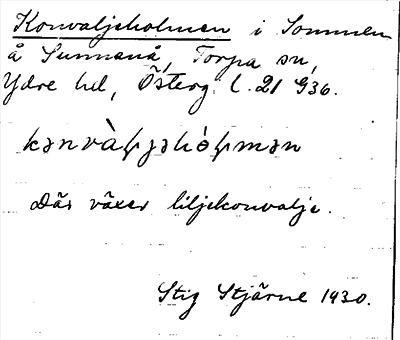 Konvaljeholmen i Sommen
å Sunnanå, Torpa sn,
Ydre hd, Österg. l. 21 G36.
kənvàļjəhòļmən
Där växer liljekonvalje.
Stig Stjärne 1930.